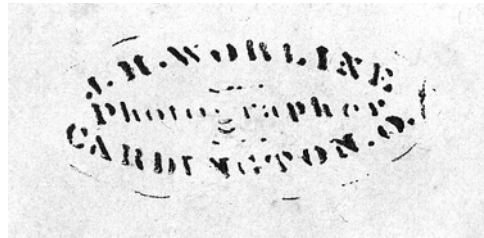 J.M.WORLINE
Photographer
CARDINGTON.O.